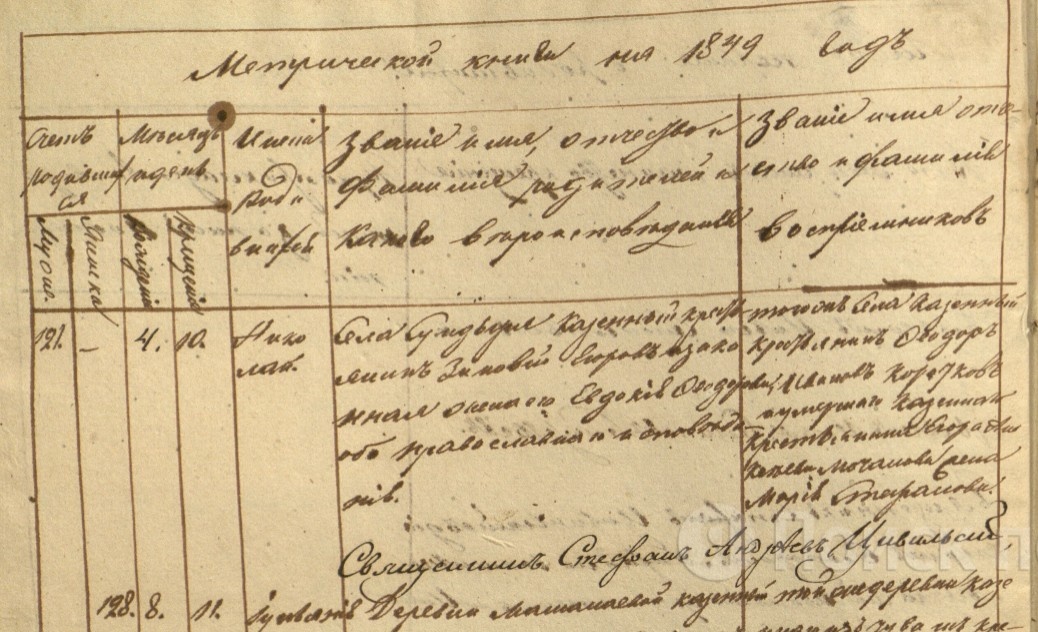 Метрической книги на 1849 годъ
Счетъ
родивших
ся
Мѣсяцъ
и день
Имена
Роди
вшихся
Званіе имя, отчество и
фамилія родителей и
какого вѣроисповѣданія
Званіе имя отче
ство и фамилія
воспріемниковъ
Мужск.
Женска
Рожденія
Крещенія
121. – 4. 10.
Нико
лай.
Села казенный крест
янинъ Зиновій Егоровъ и зако
нная жена его Евдокія Ѳеодорова
обо православнаго исповѣда
нія.
того жъ села казенный
крестьянинъ Ѳеодоръ
Ивановъ Коротковъ
и умершаго казеннаго
крестьянина Егора
жена
Марія
Священникъ Стефанъ Андреевъ Цивильскій,
128. 8. 11.
Деревни казенный
той же деревни казе